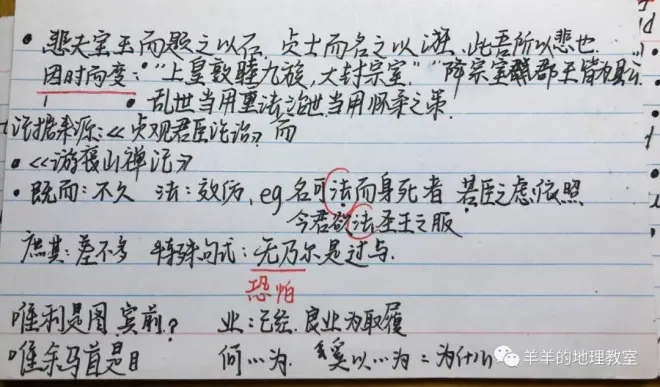 • 悲夫宝玉而题之以石 贞士而名之以诳 此吾所以悲也
因时而变："上皇敦睦九族，大封宗室" "降宗室郡王皆为县公
• 乱世当用重法治世当用怀柔之策
证据来源：《贞观君臣论治》而
• 《游褒山禅记》
• 既而：不久 法：效仿，eg 名可法而身死者 若臣之虑依照
今君欲法圣王之服
庶其：差不多 特殊句式：无乃尔是过与．
恐怕
唯利是图 宾前？ 业：已经．良业为取履
唯余马首是目 何…为． 奚以…为＝为什么
羊羊的地理教室